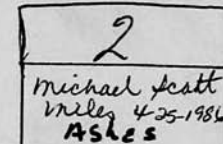 2
Michael Scott
Miles 4-25-1986
AShES